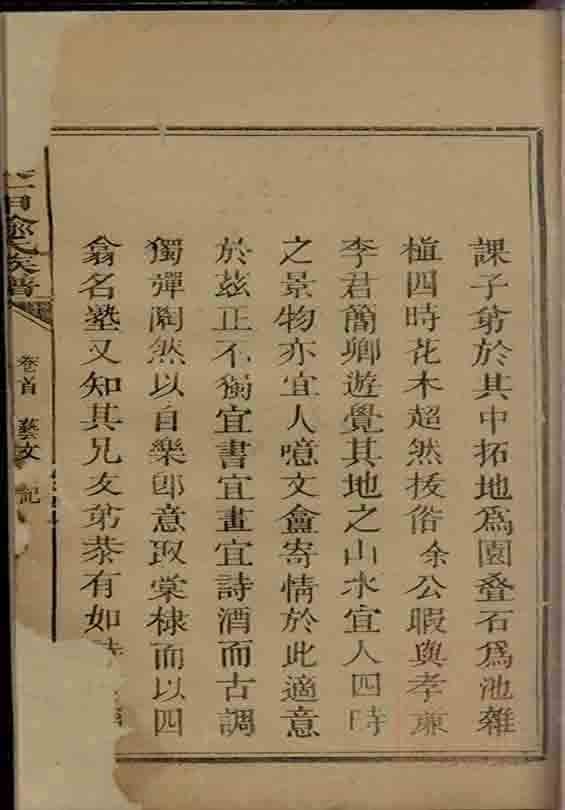 課子弟於其中拓地為園叠石為池雜
植四時花木超然拔俗余公暇與孝亷
李君簡卿遊覺其地之山水宜人四時
之景物亦宜人噫文龕寄情於此適意
於兹正不獨宜書宜畫宜詩酒而古調
獨彈陶然以自樂即意取棠棣而以四
翕名塾又知其兄友弟恭有如
俞氏族譜
卷首 藝文 記